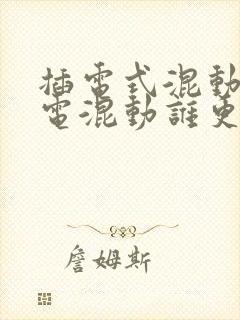 插電式混動
電混動誰更
詹姆斯